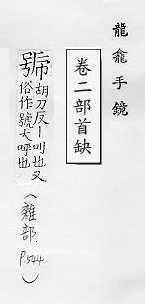 龍龕手鏡
卷二部首缺
胡刀反丨叫也又
俗作號大呼也
(雜部 P.544)